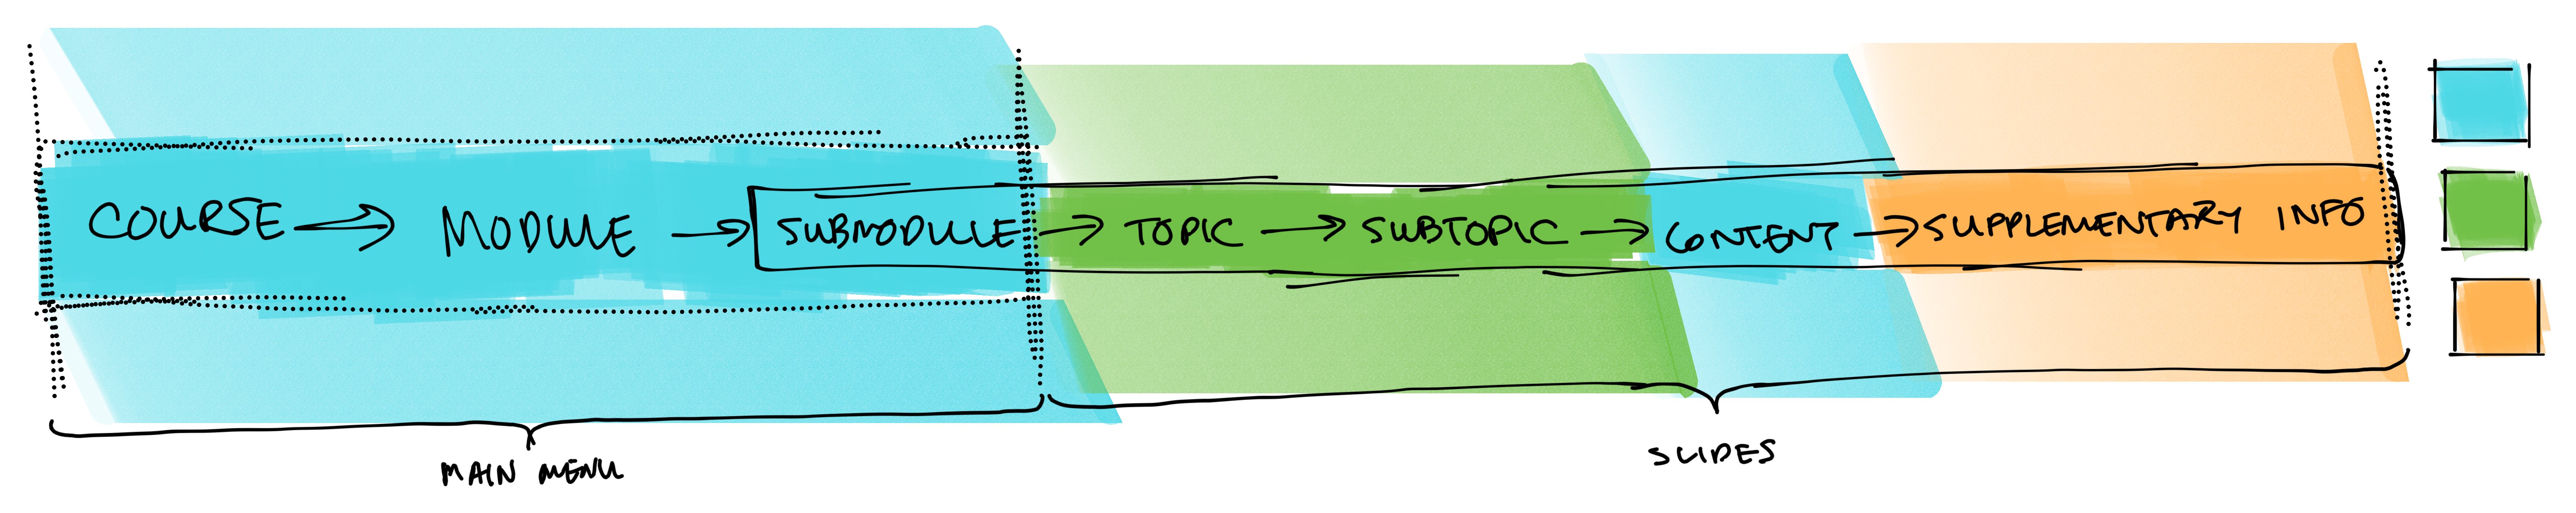 COURSE → MODULE → SUBMODULE → TOPIC → SUBTOPIC → CONTENT → SUPPLEMENTARY INFO
MAIN MENU
SLIDES